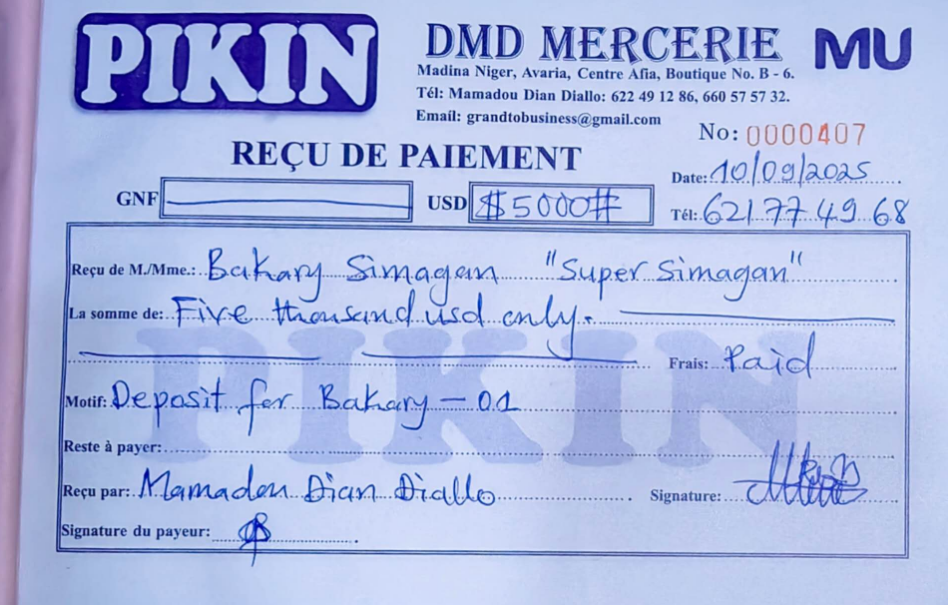 PIKIN
DMD MERCERIE
MU
Madina Niger, Avaria, Centre Afia, Boutique No. B - 6.
Tél: Mamadou Dian Diallo: 622 49 12 86, 660 57 57 32.
Email: grandtobusiness@gmail.com
No: 0000407
REÇU DE PAIEMENT
Date: 10/09/2025
GNF
USD $5000#
Tél: 621 77 49 68
Reçu de M./Mme.: Bakary Simagan "Super Simagan"
La somme de: Five thousand usd only.
Frais: Paid
Motif: Deposit for Bakary - 01
Reste à payer:
Reçu par: Mamadou Dian Diallo
Signature:
Signature du payeur:
PIKIN